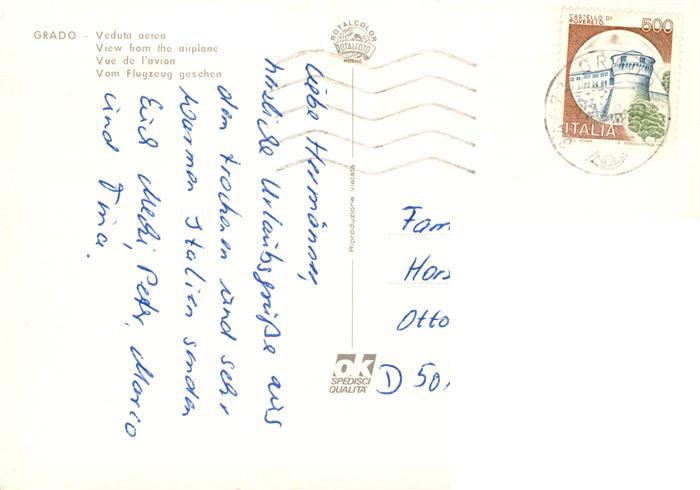 GRADO - Veduta aerea
View from the airplane
Vue de l'avion
Vom Flugzeug gesehen
ROTALCOLOR
ROTALFOTO
MILANO
CASTELLO DI
ROVERETO
500
ITALIA
Riproduzione vietata
ok
SPEDISCI
QUALITA'
Liebe Hermänner,
herzliche Urlaubsgrüße aus
dem trockenen und sehr
warmen Italien senden
Euch Mecki, Peter, Mario
und Tina.
Fam
Hors
Otto
D 50